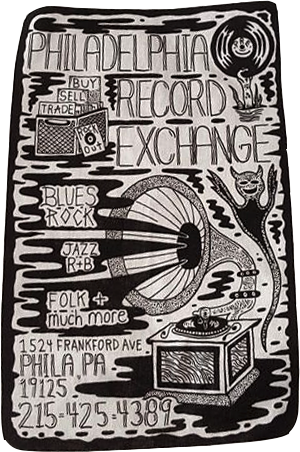 PHILADELPHIA
RECORD
EXCHANGE
BUY
SELL
TRADE
ROCK
OUT
BLUES
ROCK
JAZZ
R+B
FOLK +
much more
1524 FRANKFORD AVE
PHILA, PA
19125
215-425-4389